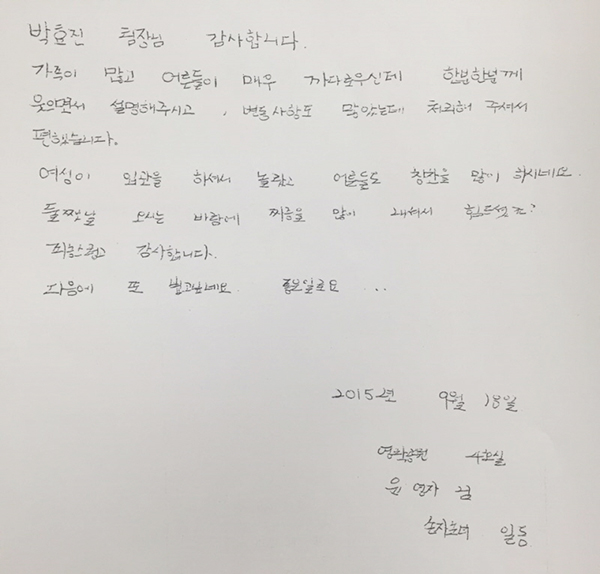 박효진 팀장님 감사합니다.
가족이 많고 어른들이 매우 까다로우신데 한분한분께
웃으면서 설명해주시고, 변동사항도 많았는데 처리해 주셔서
편했습니다.
여성이 입관을 하셔서 놀랐고 어른들도 칭찬을 많이 하시네요.
둘쨋날 오시는 바람에 찌증을 많이 내셔서 힘드셨죠?
죄송스럽고 감사합니다.
다음에 또 뵙고싶네요 좋은일로요 ...
2015년 9월 18일
4호실
윤 연자 님
손자손녀 일동